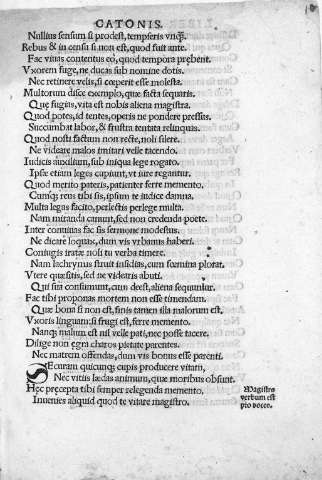 CATONIS.
Nullius sensum si prodest, tempseris vnꝗ.
Rebus & in censu si non est, quod fuit ante.
Fac viuas contentus eo, quod tempora prębent.
Vxorem fuge, ne ducas sub nomine dotis.
Nec retinere velis, si cœperit esse molesta.
Multorum disce exemplo, quæ facta sequaris.
Quę fugias, vita est nobis aliena magistra.
Quod potes, id tentes, operis ne pondere pressus.
Succumbat labor, & frustra tentata relinquas.
Quod nosti factum non recte, noli silere.
Ne videare malos imitari velle tacendo.
Iudicis auxilium, sub iniqua lege rogato.
Ipsæ etiam leges cupiunt, vt iure regantur.
Quod merito pateris, patienter ferre memento.
Cumꝗ; reus tibi sis, ipsum te iudice damna.
Multa legas facito, perlectis perlege multa.
Nam miranda canunt, sed non credenda poetę.
Inter conuiuas fac sis sermone modestus.
Ne dicare loquax, dum vis vrbanus haberi.
Coniugis iratæ noli tu verba timere.
Nam lachrymis struit insidias, cum fœmina plorat.
Vtere quæsitis, sed ne videaris abuti.
Qui sua consumunt, cum deest, aliena sequuntur.
Fac tibi proponas mortem non esse timendam.
Quæ bona si non est, finis tamen illa malorum est.
Vxoris linguam, si frugi est, ferre memento.
Nanꝗ; malum est nil velle pati, nec posse tacere.
Dilige non ęgra charos pietate parentes.
Nec matrem offendas, dum vis bonus esse parenti.
SEcuram quicunꝗ; cupis producere vitam,
Nec vitiis lædas animum, quæ moribus obsunt.
Hęc pręcepta tibi semper relegenda memento.
Inuenies aliquid quod te vitare magistro.
Magistro
verbum est
pro voce.